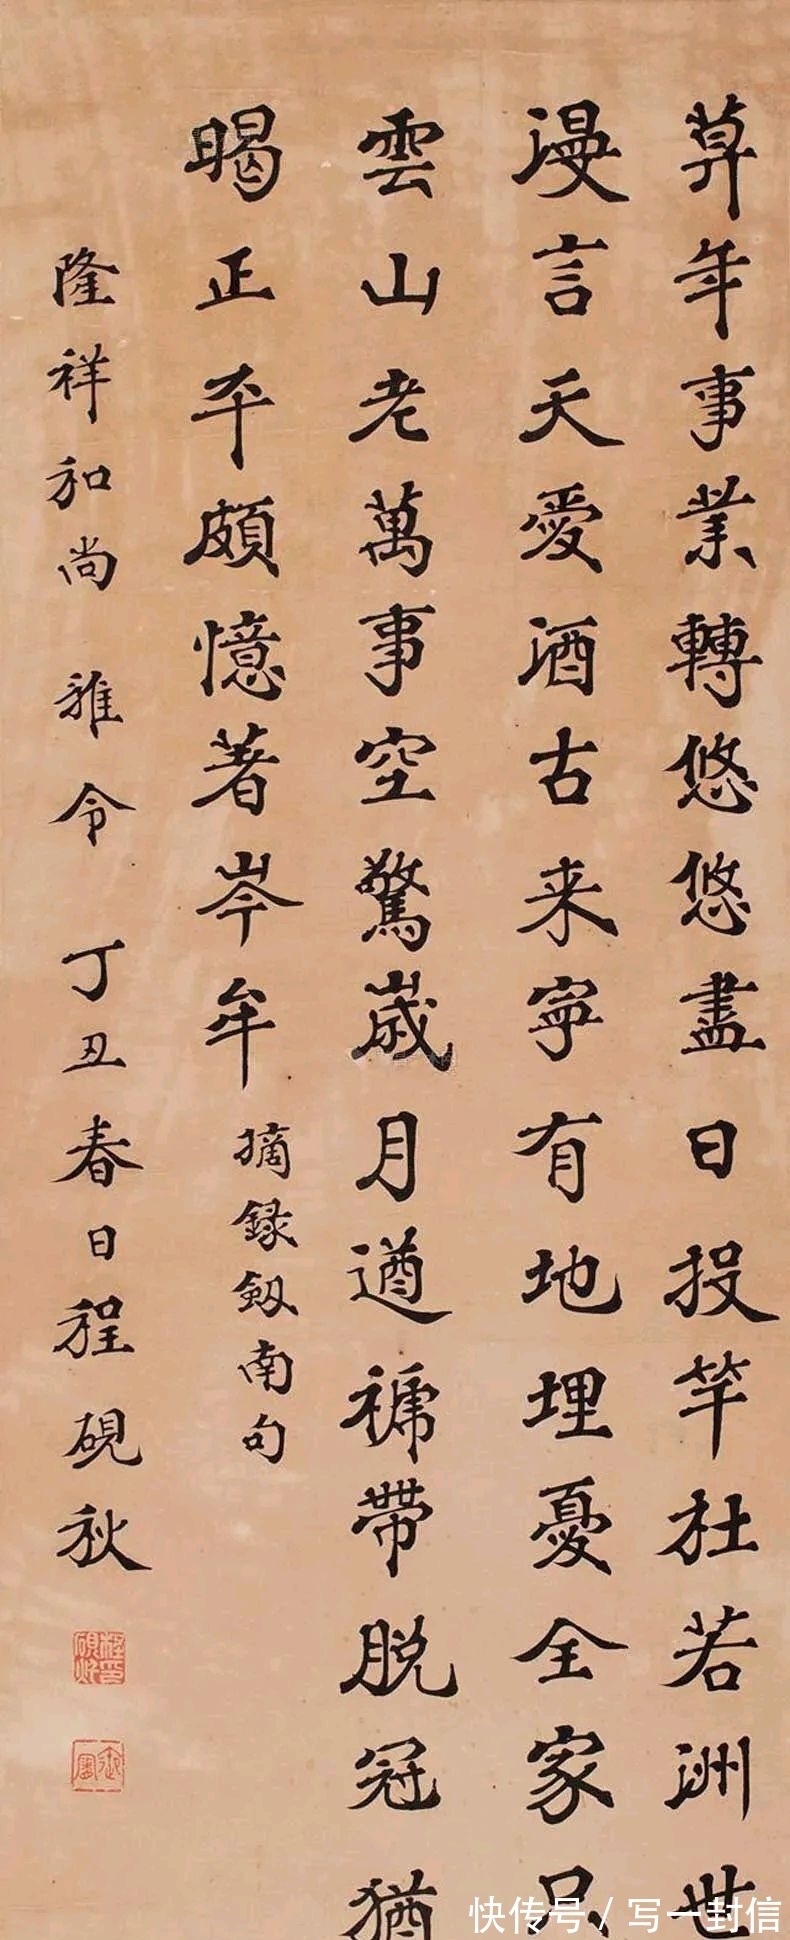 莫年事業轉悠悠盡日投竿杜若洲世
漫言天愛酒古来寧有地埋憂全家只
雲山老萬事空驚歲月遒褫帶脫冠猶
暍正平頗憶著岑牟
摘録劔南句
隆祥和尚 雅令 丁丑春日程硯秋
快传号 / 写一封信